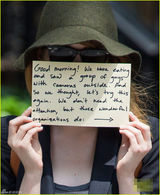 Good morning! We were eating
and saw a group of guys
with cameras outside. And
so we thought, let's try this
again. We don't need the
attention, but these wonderful
organizations do: